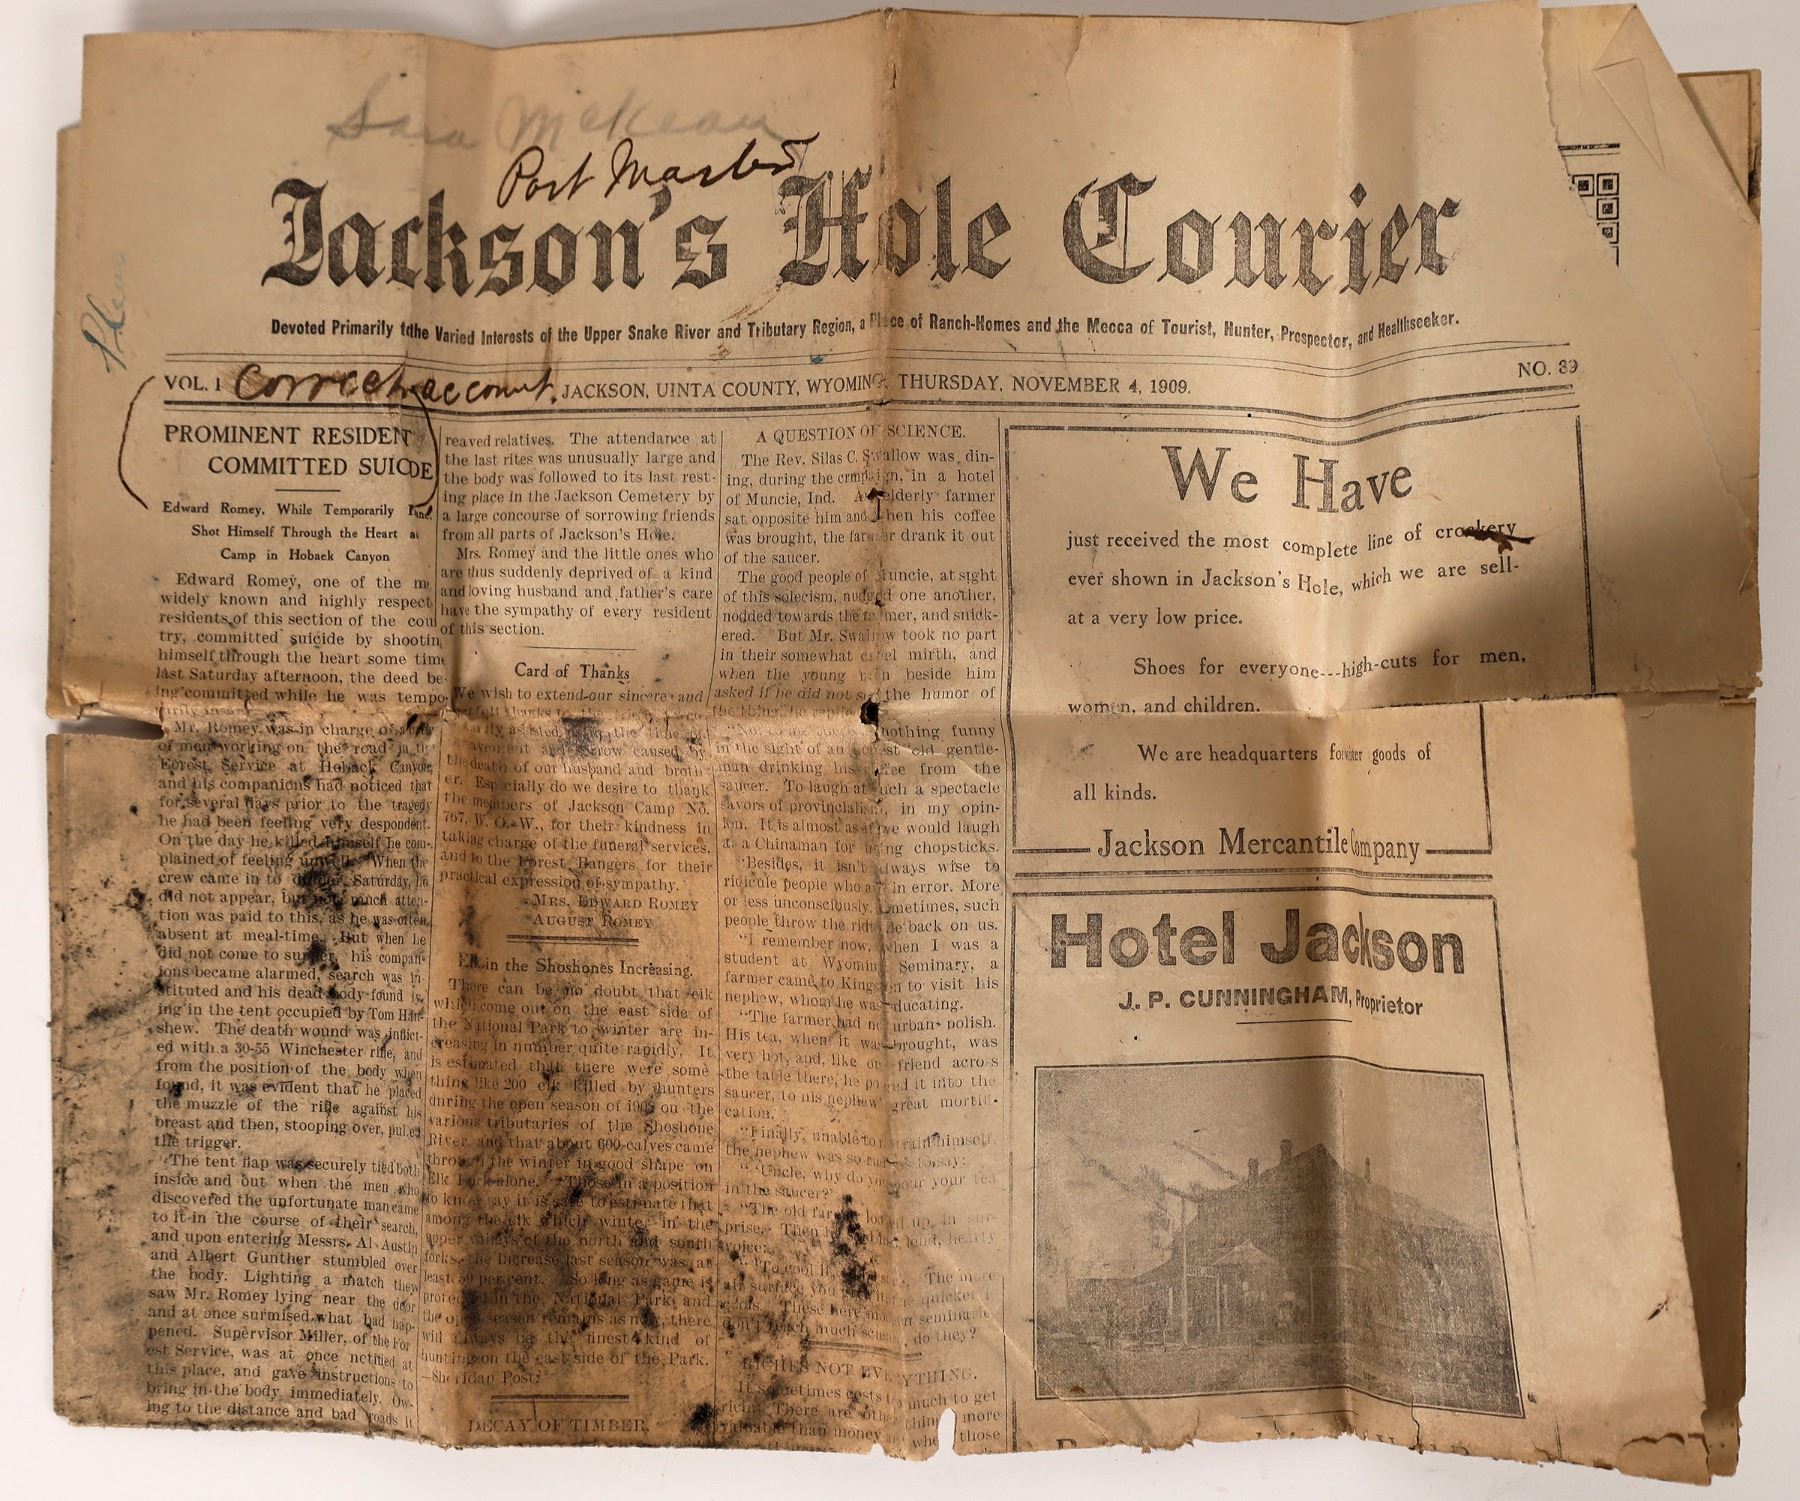 Sara McKean
Post Master
Jackson's Hole Courier
Devoted Primarily to the Varied Interests of the Upper Snake River and Tributary Region, a Place of Ranch-Homes and the Mecca of Tourist, Hunter, Prospector, and Healthseeker.
VOL. 1 Correct account. JACKSON, UINTA COUNTY, WYOMING, THURSDAY, NOVEMBER 4, 1909. NO. 39
PROMINENT RESIDENT
COMMITTED SUICIDE
Edward Romey, While Temporarily
Shot Himself Through the Heart at
Camp in Hoback Canyon
Edward Romey, one of the
widely known and highly respect
residents of this section of the cou
try, committed suicide by shootin
himself through the heart some time
last Saturday afternoon, the deed be-
ing committed while he was tempo-
Mr. Romey was in charge of a
of men working on the road in the
Forest Service at Hoback Canyon,
and his companions had noticed that
for several days prior to the tragedy
he had been feeling very despondent.
On the day he killed himself he com-
plained of feeling unwell. When the
crew came in to dinner Saturday, he
did not appear, but not much atten-
tion was paid to this, as he was often
absent at meal-time. But when he
did not come to supper, his compan-
ions became alarmed, search was in-
stituted and his dead body found ly-
ing in the tent occupied by Tom Han-
shew. The death wound was inflict-
ed with a 30-55 Winchester rifle, and
from the position of the body when
found, it was evident that he placed
the muzzle of the rifle against his
breast and then, stooping over, pulled
the trigger.
The tent flap was securely tied both
inside and out when the men who
discovered the unfortunate man came
to it in the course of their search,
and upon entering Messrs. Al Austin
and Albert Gunther stumbled over
the body. Lighting a match they
saw Mr. Romey lying near the door
and at once surmised what had hap-
pened. Supervisor Miller, of the For
est Service, was at once notified at
this place, and gave instructions to
bring in the body immediately. Ow-
ing to the distance and bad roads it
reaved relatives. The attendance at
the last rites was unusually large and
the body was followed to its last rest-
ing place in the Jackson Cemetery by
a large concourse of sorrowing friends
from all parts of Jackson's Hole.
Mrs. Romey and the little ones who
are thus suddenly deprived of a kind
and loving husband and father's care
have the sympathy of every resident
of this section.
Card of Thanks
We wish to extend our sincere and
heartfelt thanks to
kindly assisted us in the time of
bereavement and sorrow caused by
the death of our husband and broth
er. Especially do we desire to thank
the members of Jackson Camp No.
767, W. O. W., for their kindness in
taking charge of the funeral services,
and to the Forest Rangers for their
practical expression of sympathy.
MRS. EDWARD ROMEY
AUGUST ROMEY
Elk in the Shoshones Increasing.
There can be no doubt that elk
which come out on the east side of
the National Park to winter are in-
creasing in number quite rapidly. It
is estimated that there were some
thing like 200 elk killed by hunters
during the open season of 190 on the
various tributaries of the Shoshone
River, and that about 600 calves came
through the winter in good shape on
Elk Fork alone. Those in a position
to know say it is safe to estimate that
among the elk which winter in the
upper valleys of the north and south
forks, the increase last season was at
least 50 per cent. So long as game is
protected in the National Park and
the open season remains as now, there
will always be the finest kind of
hunting on the east side of the Park.
—Sheridan Post.
DECAY OF TIMBER.
A QUESTION OF SCIENCE.
The Rev. Silas C. Swallow was din-
ing, during the campaign, in a hotel
of Muncie, Ind. An elderly farmer
sat opposite him and when his coffee
was brought, the farmer drank it out
of the saucer.
The good people of Muncie, at sight
of this solecism, nudged one another,
nodded towards the farmer, and snick-
ered. But Mr. Swallow took no part
in their somewhat cruel mirth, and
when the young man beside him
asked if he did not see the humor of
the thing, he replied
nothing funny
in the sight of an honest old gentle-
man drinking his coffee from the
saucer. To laugh at such a spectacle
savors of provincialism, in my opin-
ion. It is almost as if we would laugh
at a Chinaman for using chopsticks.
"Besides, it isn't always wise to
ridicule people who are in error. More
or less unconsciously, sometimes, such
people throw the ridicule back on us.
"I remember now, when I was a
student at Wyoming Seminary, a
farmer came to Kingston to visit his
nephew, whom he was educating.
"The farmer had no urban polish.
His tea, when it was brought, was
very hot, and, like our friend across
the table there, he poured it into the
saucer, to his nephew's great mortifi-
cation.
"Finally, unable to restrain himself,
the nephew was so rude as to say:
"'Uncle, why do you pour your tea
in the saucer?'
"The old farmer looked up in sur-
prise. Then in a loud, hearty
voice:
"'To cool it, The more
air surface you the quicker it
cools. These here modern seminaries
don't teach much science, do they?'
RICHES NOT EVERYTHING.
It sometimes costs too much to get
rich. There are other things more
valuable than money and when those
We Have
just received the most complete line of crockery
ever shown in Jackson's Hole, which we are sell-
at a very low price.
Shoes for everyone---high-cuts for men,
women, and children.
We are headquarters for winter goods of
all kinds.
Jackson Mercantile Company
Hotel Jackson
J. P. CUNNINGHAM, Proprietor